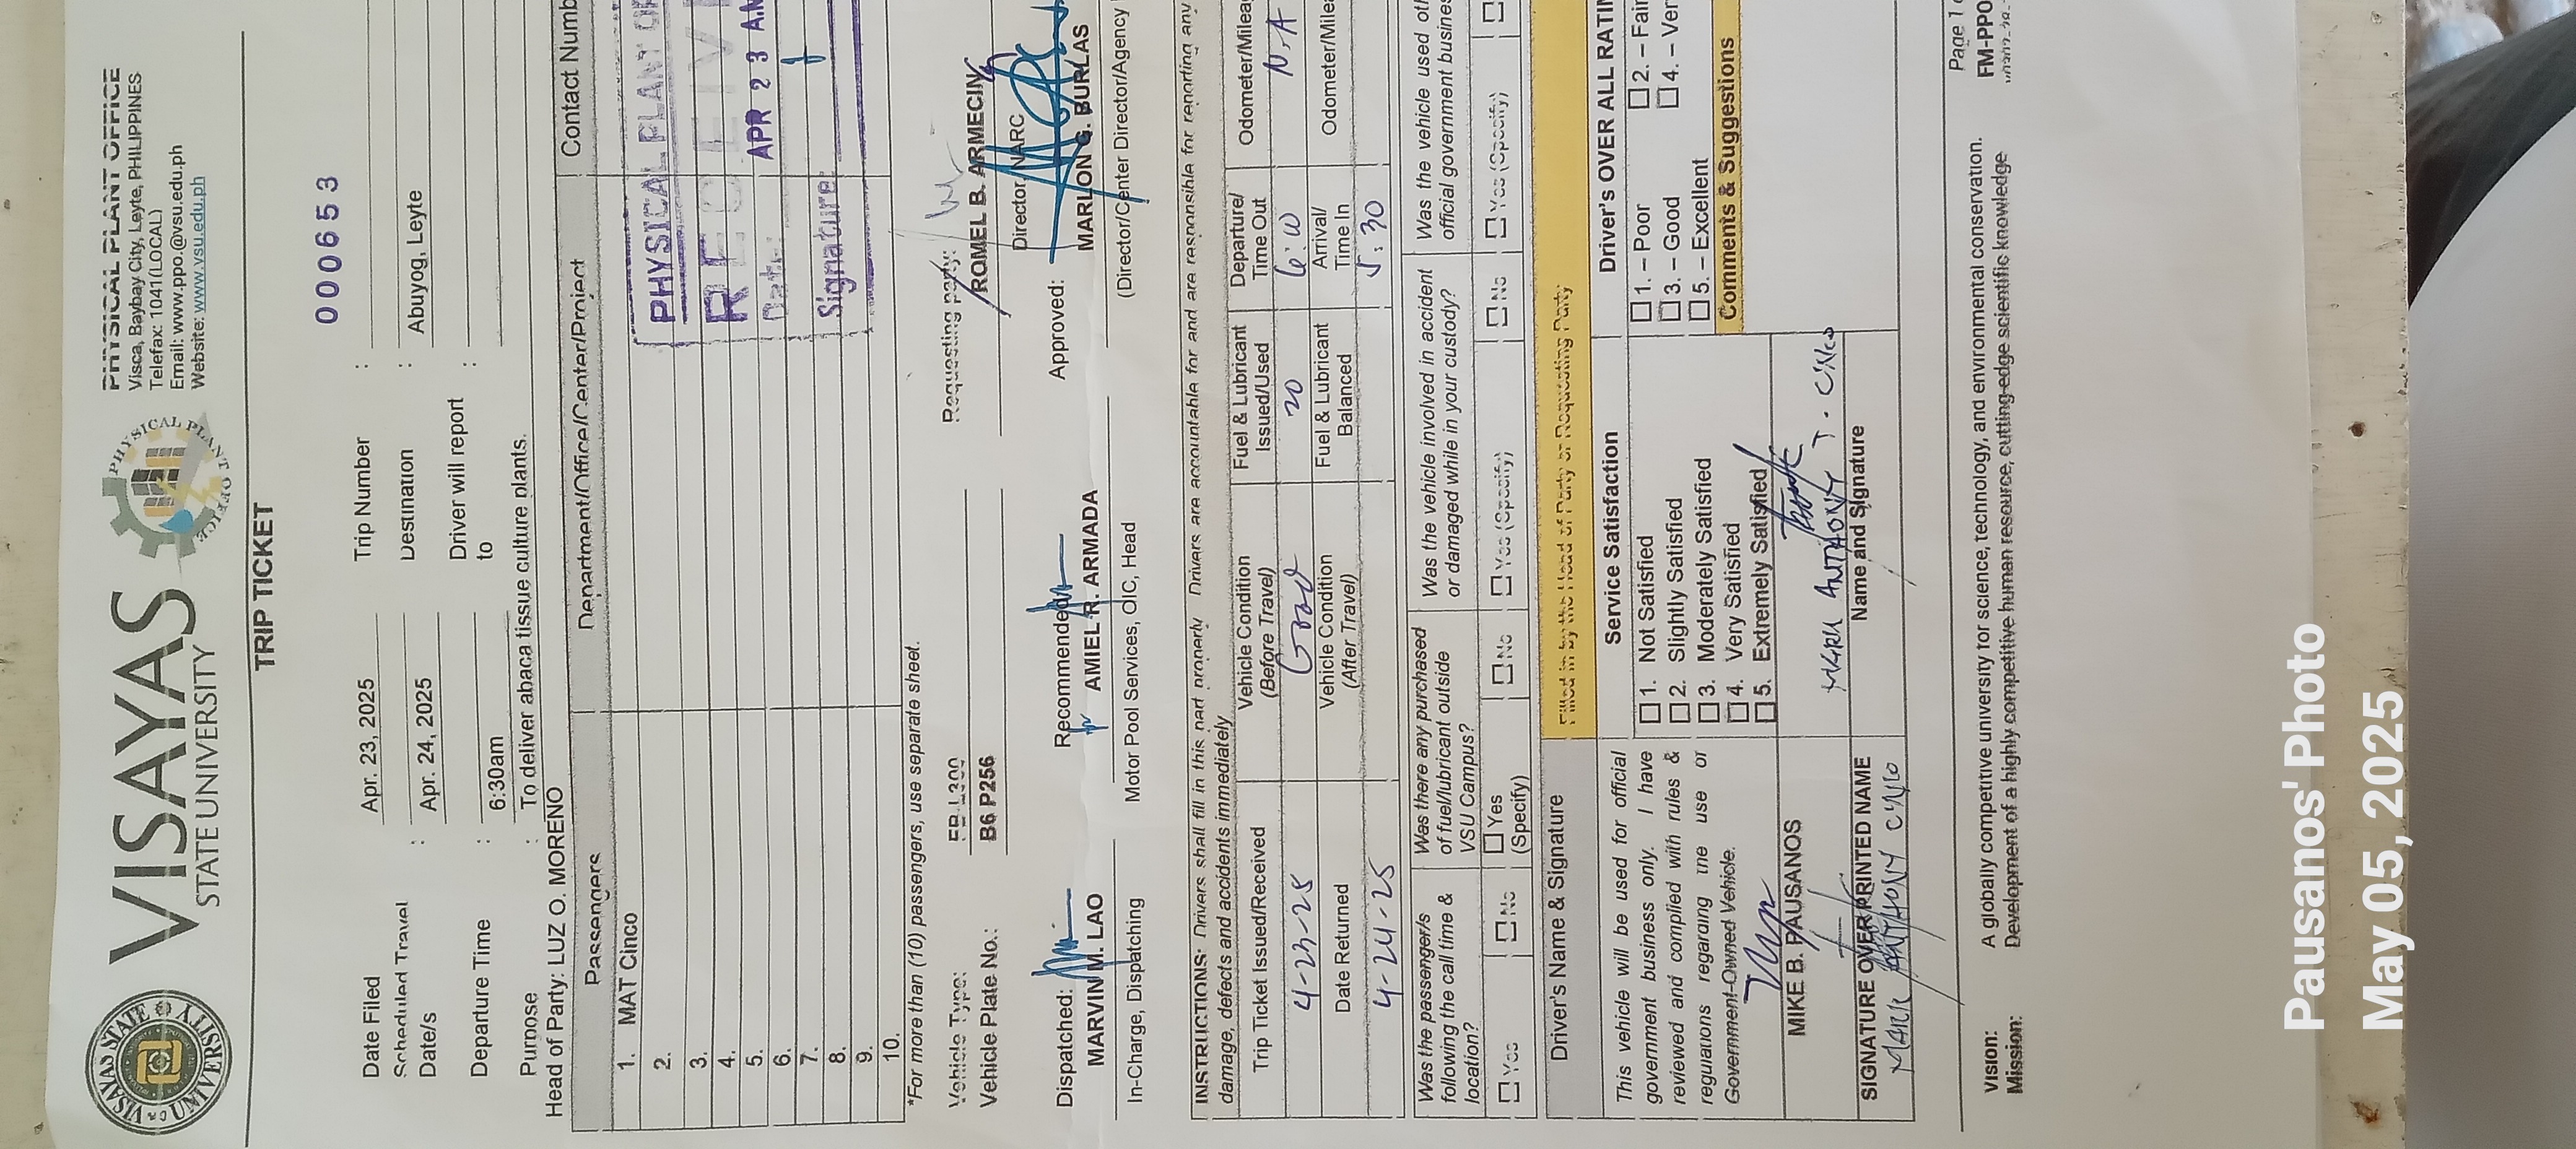 VISAYAS
STATE UNIVERSITY
PHYSICAL PLANT OFFICE
PHYSICAL PLANT OFFICE
Visca, Baybay City, Leyte, PHILIPPINES
Telefax: 1041(LOCAL)
Email: www.ppo.@vsu.edu.ph
Website: www.vsu.edu.ph
TRIP TICKET
000653
Date Filed Apr. 23, 2025 Trip Number :
Scheduled Travel Date/s : Apr. 24, 2025 Destination : Abuyog, Leyte
Departure Time : 6:30am Driver will report to :
Purpose : To deliver abaca tissue culture plants.
Head of Party: LUZ O. MORENO
Passengers Department/Office/Center/Project Contact Numb
1. MAT Cinco
2.
3.
4.
5.
6.
7.
8.
9.
10.
PHYSICAL PLANT OF
RECEIV
Date:
APR 23 AM
Signature:
*For more than (10) passengers, use separate sheet.
Vehicle Type: FB L300
Vehicle Plate No.: B6 P256
Requesting party:
ROMEL B. ARMECIN
Director NARC
Dispatched: Recommended: Approved:
MARVIN M. LAO AMIEL R. ARMADA MARLON G. BURLAS
In-Charge, Dispatching Motor Pool Services, OIC, Head (Director/Center Director/Agency
INSTRUCTIONS: Drivers shall fill in this part properly. Drivers are accountable for and are responsible for reporting any
damage, defects and accidents immediately
Trip Ticket Issued/Received Vehicle Condition (Before Travel) Fuel & Lubricant Issued/Used Departure/ Time Out Odometer/Mileag
4-23-25 Good 20 N.A
Date Returned Vehicle Condition (After Travel) Fuel & Lubricant Balanced Arrival/ Time In Odometer/Milea
4-24-25 5:30
Was the passenger/s following the call time & location?
Was there any purchased of fuel/lubricant outside VSU Campus?
Was the vehicle involved in accident or damaged while in your custody?
Was the vehicle used oth
official government busines
Yes No Yes (Specify) No Yes (Specify) No Yes (Specify)
Driver's Name & Signature
Filled in by the Head of Party or Requesting Party:
This vehicle will be used for official
government business only. I have
reviewed and complied with rules &
regulations regarding the use of
Government-Owned Vehicle.
MIKE B. PAUSANOS
SIGNATURE OVER PRINTED NAME
MARK ANTHONY CINCO
Service Satisfaction
1. Not Satisfied
2. Slightly Satisfied
3. Moderately Satisfied
4. Very Satisfied
5. Extremely Satisfied
MARK ANTHONY T. CINCO
Name and Signature
Driver's OVER ALL RATIN
1. – Poor 2. – Fair
3. – Good 4. – Ver
5. – Excellent
Comments & Suggestions
Vision: A globally competitive university for science, technology, and environmental conservation.
Mission: Development of a highly competitive human resource, cutting-edge scientific knowledge
Page 1
FM-PPO
Pausanos' Photo
May 05, 2025